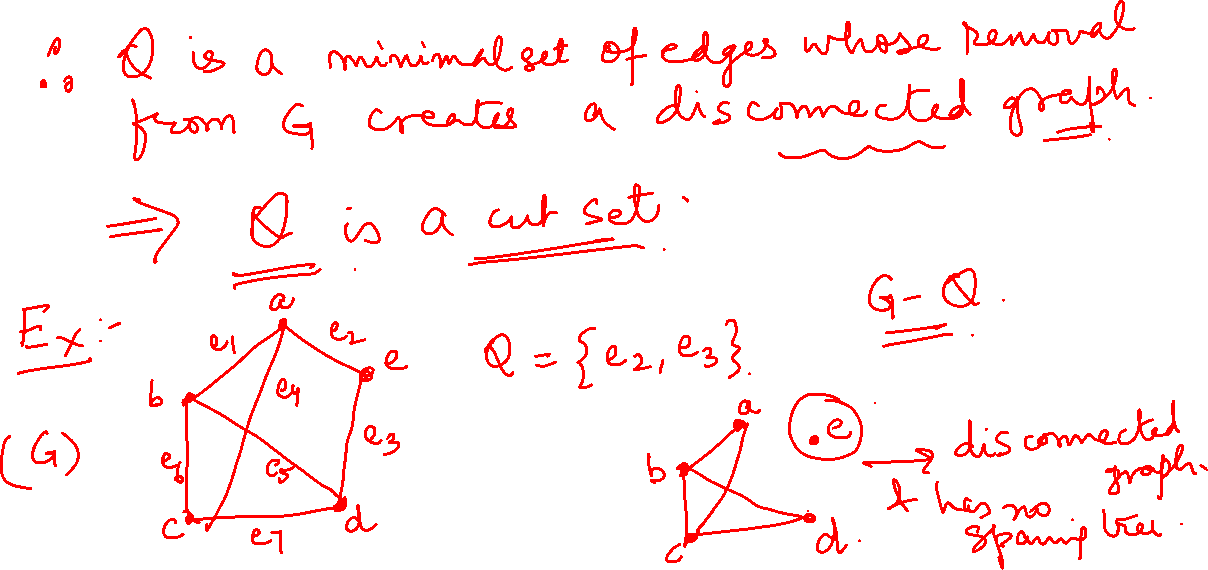 ∴ Q is a minimal set of edges whose removal
from G creates a disconnected graph.
⇒ Q is a cut set.
G - Q.
Ex :-
(G)
a
e1 e2
b e4 e
e6 e5 e3
c e7 d
Q = {e2, e3}.
a .e
b
c d.
→ disconnected
graph.
& has no
spanning tree.